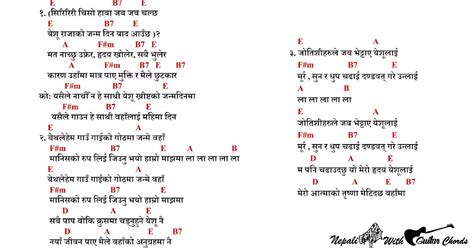 E B7 E
१. (सिरिरिरी चिसो हावा जब जब चल्छ
E B7 E
येशू राजाको जन्म दिन याद आउँछ )२
E A B7 E
मत नाच्छु उफ्रेर, हृदय खोलेर, सबै भुलेर
F#m B7 E
कारण उहाँमा मात्र पाए मुक्ति र मैले छुटकार
E F#m B7 E
को: यसैले नाचौँ न हे साथी येशू ख्रीष्टको जन्मदिनमा
E F#m B7 E
यसैले गाउन चाहन्छौँ सबैले उहाँलाई महिमा दिन
E B7 E
२. बेथलेहेम गाउँ गाईको गोठमा जन्मे वहाँ
A E
मानिसको रुप लिई जिउनु भयो हाम्रो माझमा ला ला ला ला ला
E B7 E
बेथलेहेम गाउँ गाईको गोठमा जन्मे वहाँ
F#m B7 E
मानिसको रुप लिई जिउनु भयो हाम्रो माझमा
D A E
सबै पाप बोकि क्रुसमा चढ्नुहुने येशूनै नै
D A B7 E
नयाँ जीवन पाए मैले वहाँको अनुग्रहमा नै
E B7 E
३. जोतिशीहरुले जब भेट्टाए येशूलाई
F#m B7 E
मूर्र , सुन र धुप चढाई दण्डवत् गरे उन्लाई
A E
ला ला ला ला ला
E B7 E
जोतिशीहरुले जब भेट्टाए येशूलाई
F#m B7 E
मूर्र , सुन र धुप चढाई दण्डवत् गरे उन्लाई
D A E
म पनि चढाउदछु यो मेरो हृदय येशूलाई
D A B7 E
मेरो आत्माको तृष्णा मेटिदछ वहाँमा
Nepali With Guitar Chords